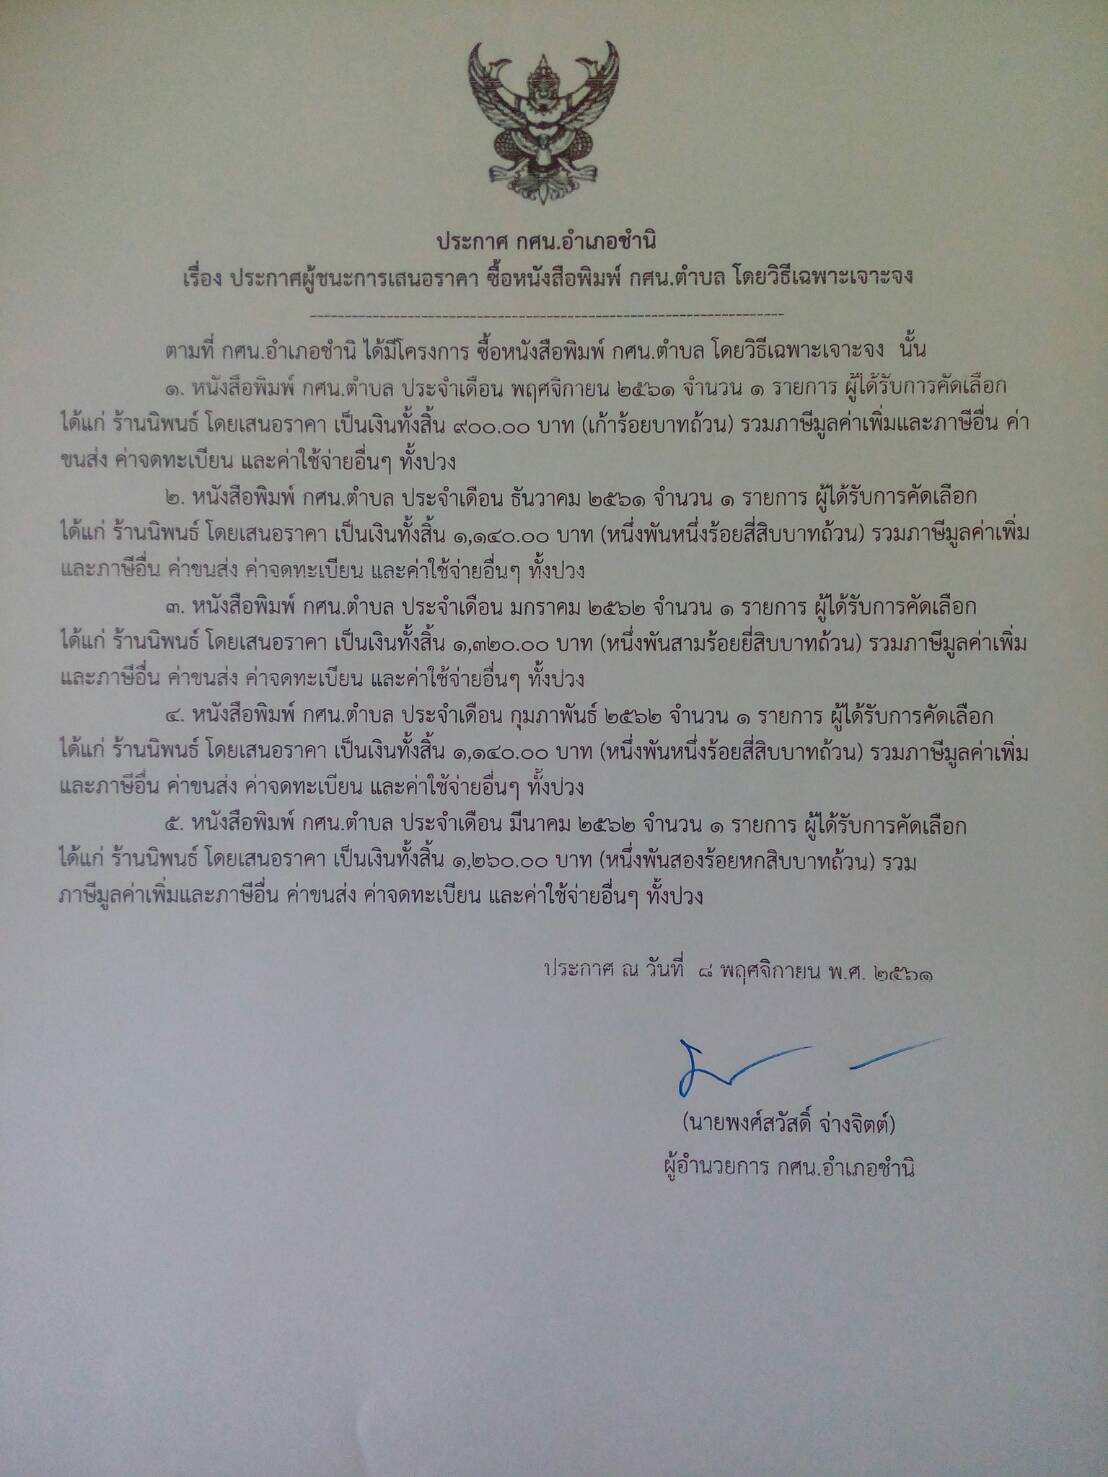 ประกาศ กศน.อำเภอชำนิ
เรื่อง ประกาศผู้ชนะการเสนอราคา ซื้อหนังสือพิมพ์ กศน.ตำบล โดยวิธีเฉพาะเจาะจง
ตามที่ กศน.อำเภอชำนิ ได้มีโครงการ ซื้อหนังสือพิมพ์ กศน.ตำบล โดยวิธีเฉพาะเจาะจง นั้น
๑. หนังสือพิมพ์ กศน.ตำบล ประจำเดือน พฤศจิกายน ๒๕๖๑ จำนวน ๑ รายการ ผู้ได้รับการคัดเลือก
ได้แก่ ร้านนิพนธ์ โดยเสนอราคา เป็นเงินทั้งสิ้น ๙๐๐.๐๐ บาท (เก้าร้อยบาทถ้วน) รวมภาษีมูลค่าเพิ่มและภาษีอื่น ค่า
ขนส่ง ค่าจดทะเบียน และค่าใช้จ่ายอื่นๆ ทั้งปวง
๒. หนังสือพิมพ์ กศน.ตำบล ประจำเดือน ธันวาคม ๒๕๖๑ จำนวน ๑ รายการ ผู้ได้รับการคัดเลือก
ได้แก่ ร้านนิพนธ์ โดยเสนอราคา เป็นเงินทั้งสิ้น ๑,๑๔๐.๐๐ บาท (หนึ่งพันหนึ่งร้อยสี่สิบบาทถ้วน) รวมภาษีมูลค่าเพิ่ม
และภาษีอื่น ค่าขนส่ง ค่าจดทะเบียน และค่าใช้จ่ายอื่นๆ ทั้งปวง
๓. หนังสือพิมพ์ กศน.ตำบล ประจำเดือน มกราคม ๒๕๖๒ จำนวน ๑ รายการ ผู้ได้รับการคัดเลือก
ได้แก่ ร้านนิพนธ์ โดยเสนอราคา เป็นเงินทั้งสิ้น ๑,๓๒๐.๐๐ บาท (หนึ่งพันสามร้อยยี่สิบบาทถ้วน) รวมภาษีมูลค่าเพิ่ม
และภาษีอื่น ค่าขนส่ง ค่าจดทะเบียน และค่าใช้จ่ายอื่นๆ ทั้งปวง
๔. หนังสือพิมพ์ กศน.ตำบล ประจำเดือน กุมภาพันธ์ ๒๕๖๒ จำนวน ๑ รายการ ผู้ได้รับการคัดเลือก
ได้แก่ ร้านนิพนธ์ โดยเสนอราคา เป็นเงินทั้งสิ้น ๑,๑๔๐.๐๐ บาท (หนึ่งพันหนึ่งร้อยสี่สิบบาทถ้วน) รวมภาษีมูลค่าเพิ่ม
และภาษีอื่น ค่าขนส่ง ค่าจดทะเบียน และค่าใช้จ่ายอื่นๆ ทั้งปวง
๕. หนังสือพิมพ์ กศน.ตำบล ประจำเดือน มีนาคม ๒๕๖๒ จำนวน ๑ รายการ ผู้ได้รับการคัดเลือก
ได้แก่ ร้านนิพนธ์ โดยเสนอราคา เป็นเงินทั้งสิ้น ๑,๒๖๐.๐๐ บาท (หนึ่งพันสองร้อยหกสิบบาทถ้วน) รวม
ภาษีมูลค่าเพิ่มและภาษีอื่น ค่าขนส่ง ค่าจดทะเบียน และค่าใช้จ่ายอื่นๆ ทั้งปวง
ประกาศ ณ วันที่ ๘ พฤศจิกายน พ.ศ. ๒๕๖๑
(นายพงศ์สวัสดิ์ จ่างจิตต์)
ผู้อำนวยการ กศน.อำเภอชำนิ